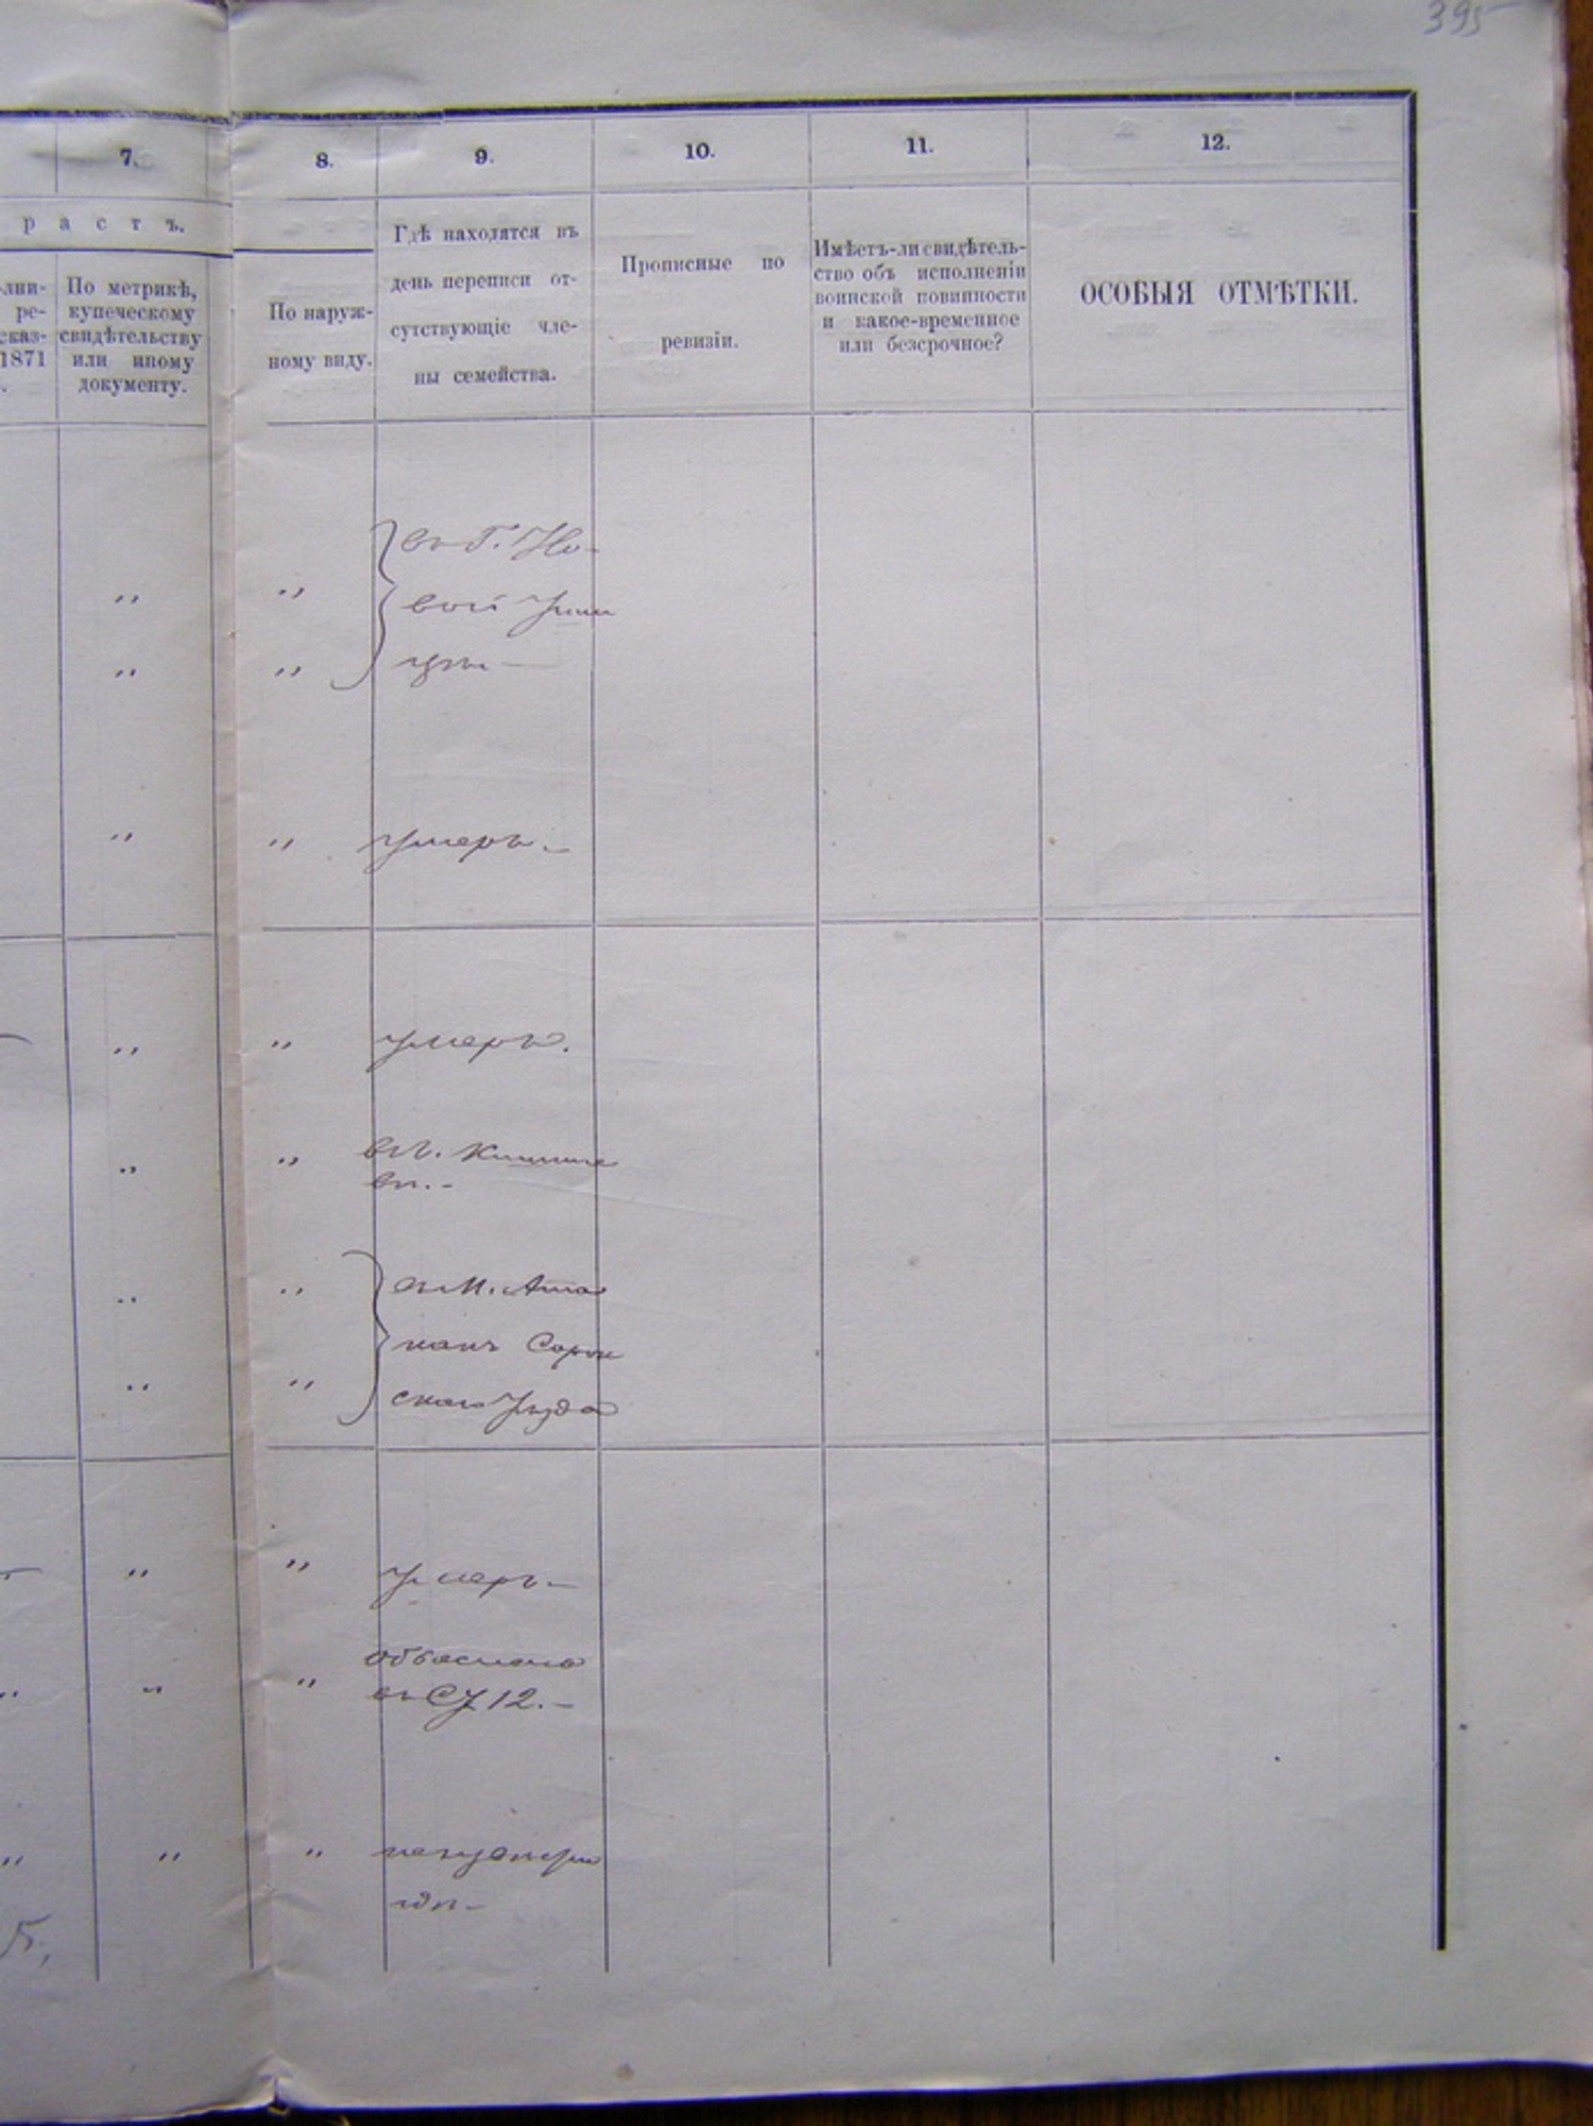 395
7. 8. 9. 10. 11. 12.
растъ.
лни-
ре-
сказ-
1871
По метрикѣ,
купеческому
свидѣтельству
или иному
документу.
По наруж-
ному виду.
Гдѣ находятся въ
день переписи от-
сутствующіе чле-
ны семейства.
Прописные по
ревизіи.
Имѣетъ-ли свидѣтель-
ство объ исполненіи
воинской повинности
и какое-временное
или безсрочное?
ОСОБЫЯ ОТМѢТКИ.
въ Г. Но-
вой Уши
цѣ
" "
" "
" " умеръ.
" " умеръ.
" " въ г. Кишине
вѣ.
" " въ М. Ата
кахъ Сорок
" "
скаго Уѣзда
" " умеръ
" " " объяснено
въ СУ 12.
" " "
5,